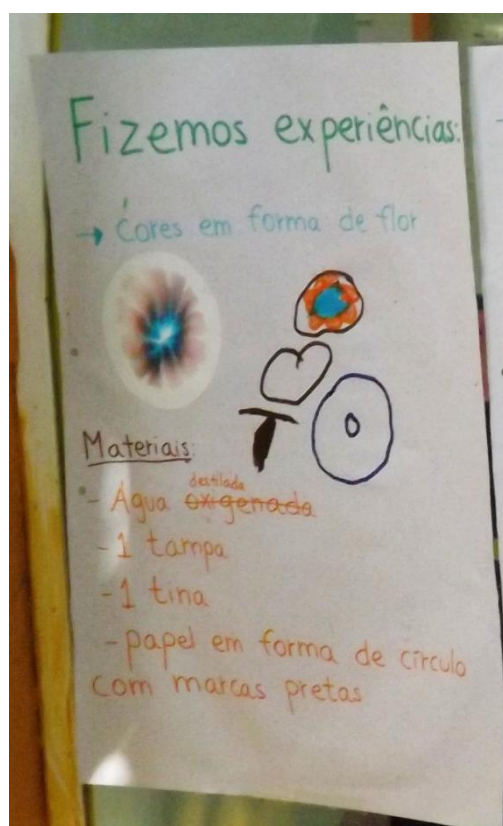 Fizemos experiências:
→ Cores em forma de flor
Materiais:
destilada
- Água oxigenada
- 1 tampa
- 1 tina
- papel em forma de círculo
com marcas pretas